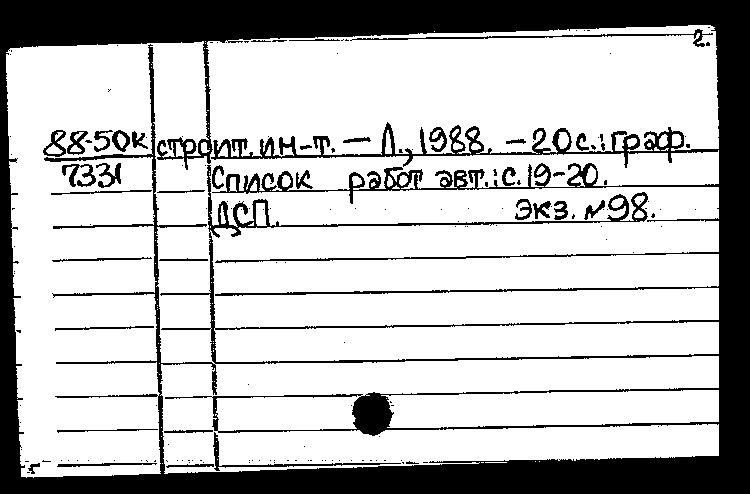 2.
88-50к строит. ин-т. — Л., 1988. — 20 с.: граф.
7331 Список работ авт.: с. 19-20.
ДСП. Экз. №98.